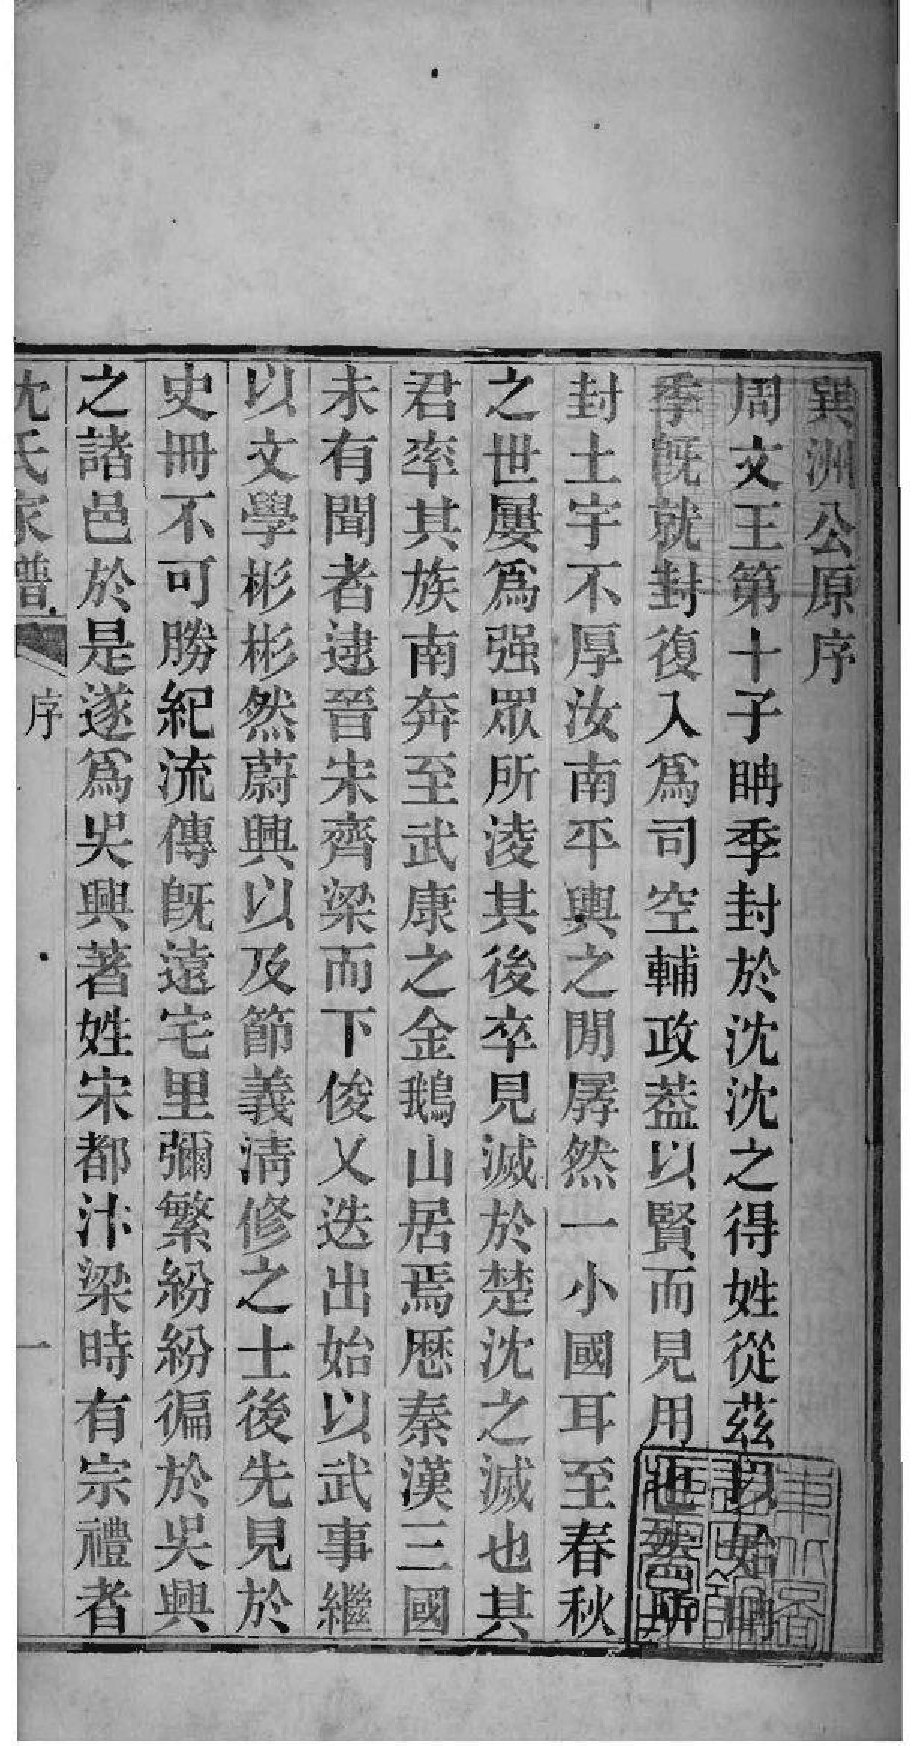 巽洲公原序
周文王第十子聃季封於沈沈之得姓從茲以始聃
季旣就封復入爲司空輔政葢以賢而見用也然所
封土宇不厚汝南平輿之閒孱然一小國耳至春秋
之世屢爲强眾所淩其後卒見滅於楚沈之滅也其
君率其族南奔至武康之金鵝山居焉厯秦漢三國
未有聞者逮晉宋齊梁而下俊乂迭出始以武事繼
以文學彬彬然蔚興以及節義淸修之士後先見於
史冊不可勝紀流傳旣遠宅里彌繁紛紛徧於吳興
之諸邑於是遂爲吳興著姓宋都汴梁時有宗禮者
沈氏家譜
序
一